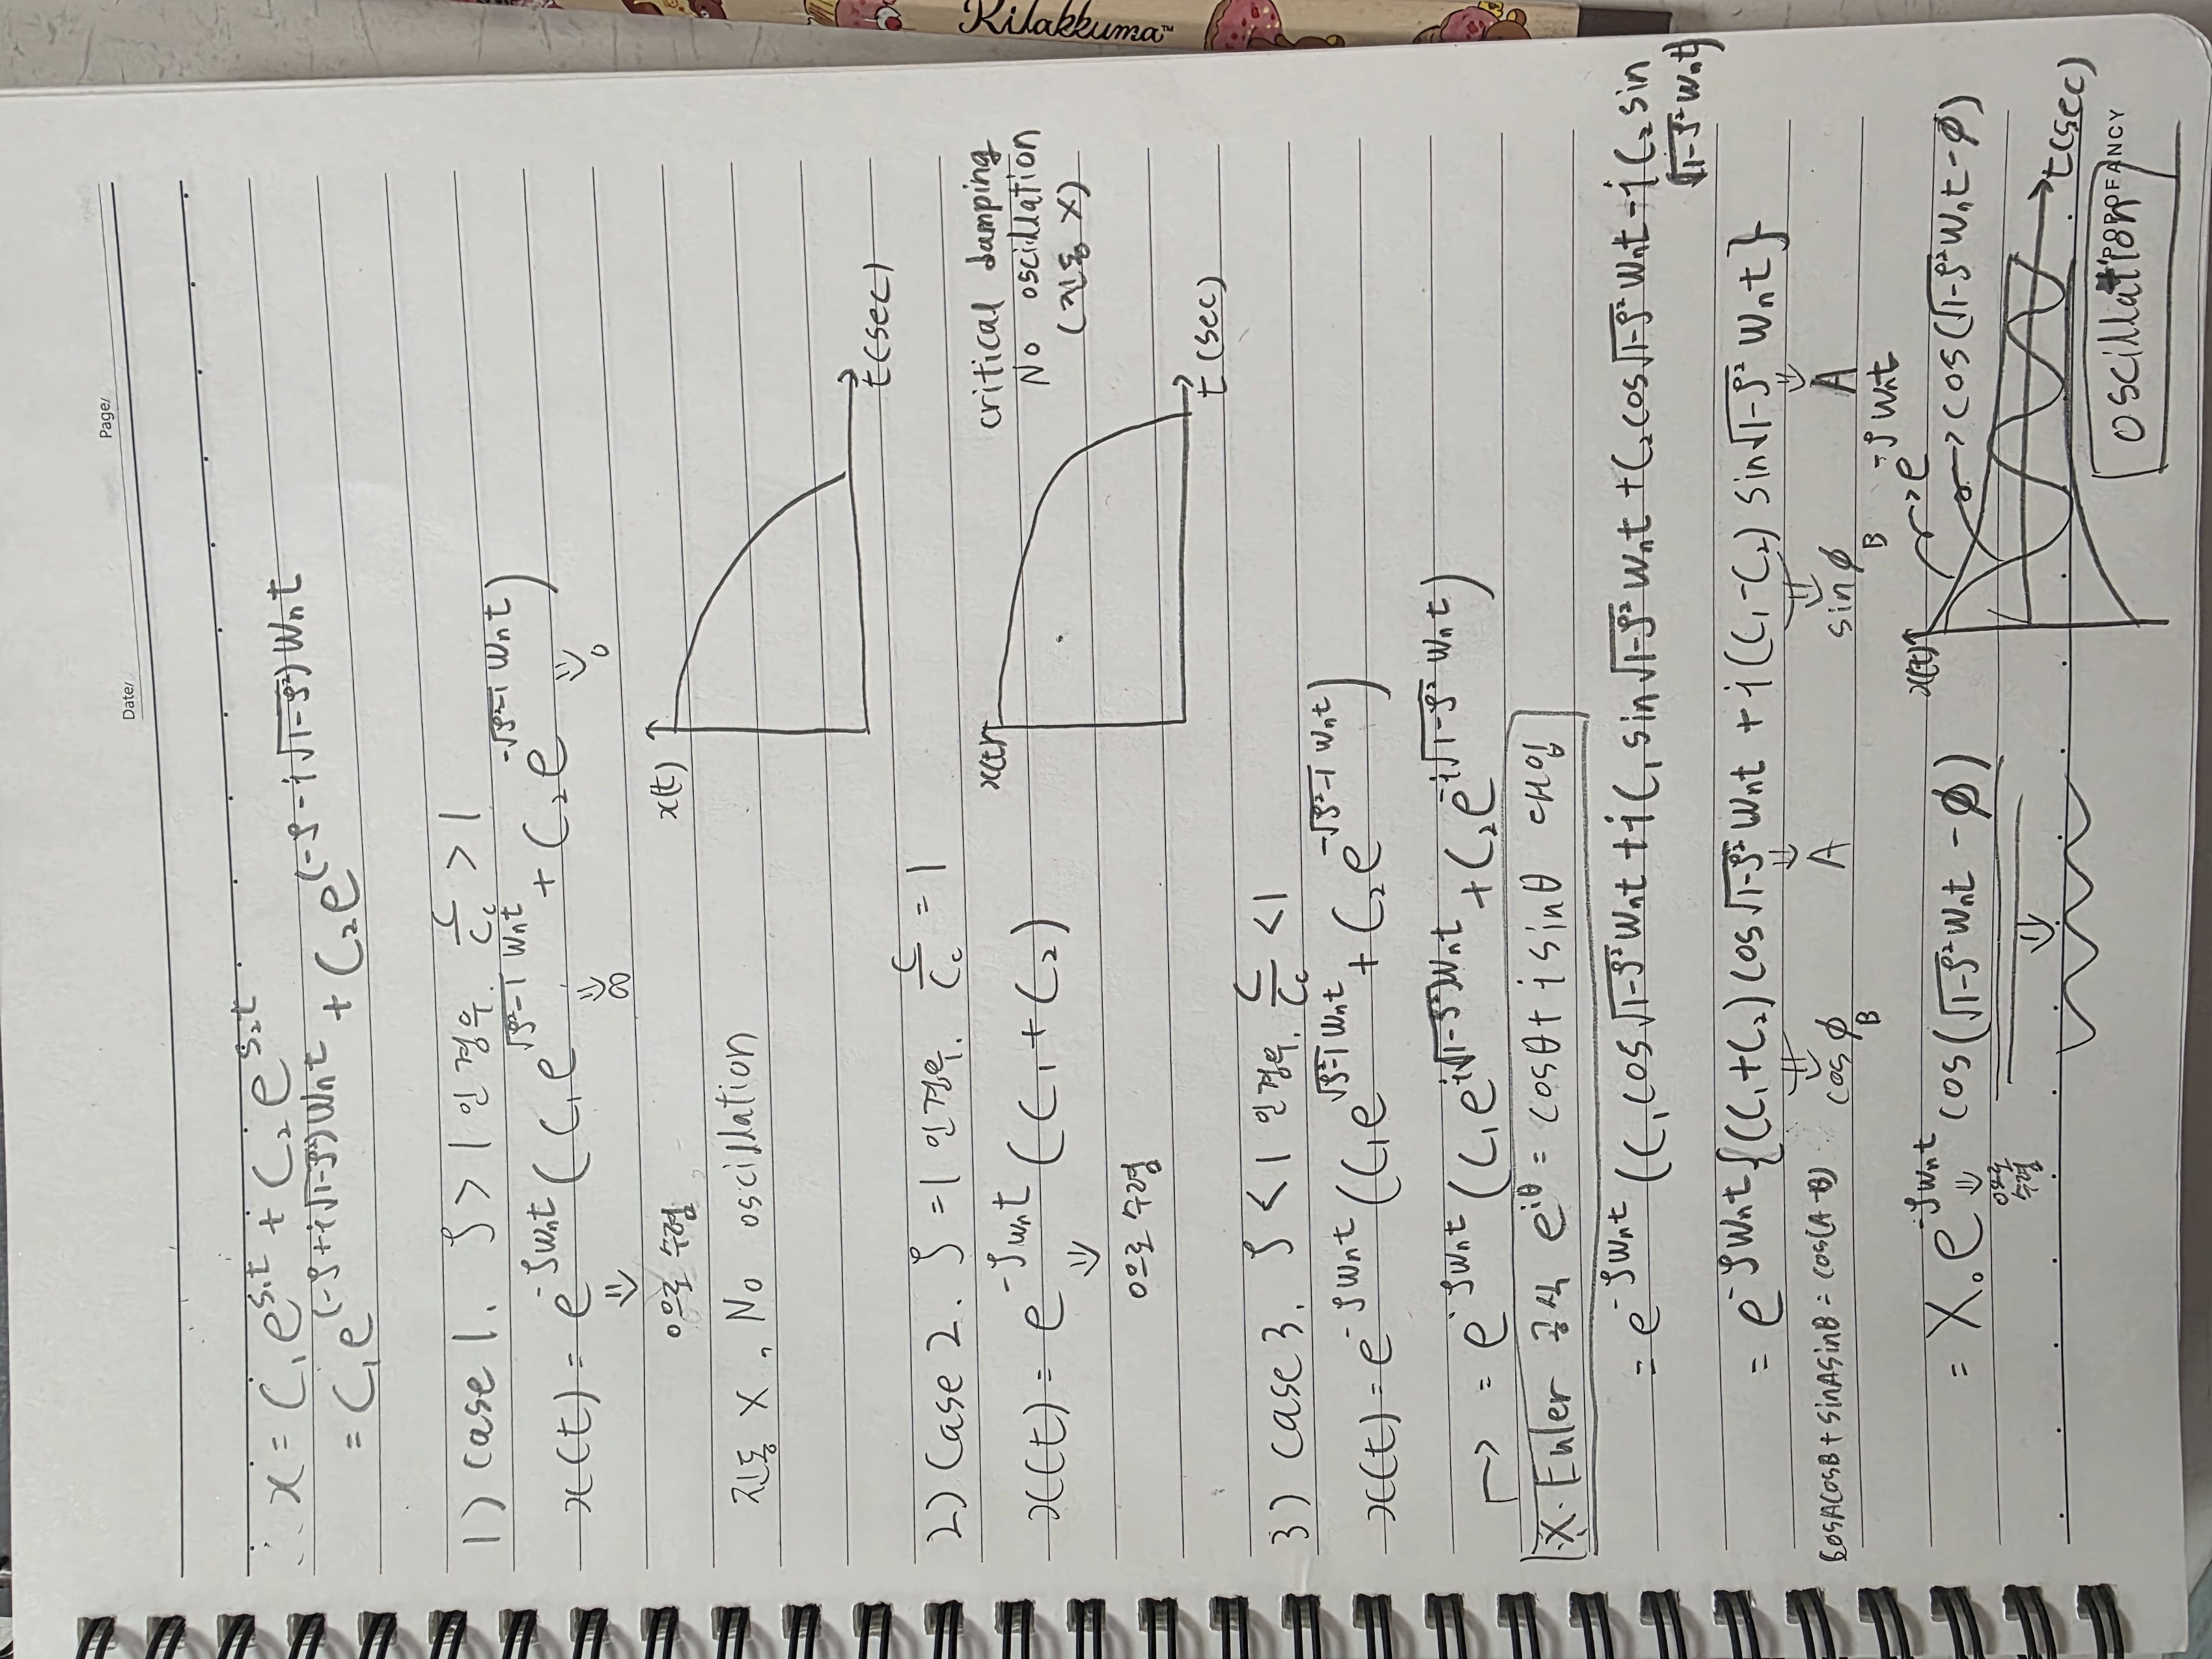 Rilakkuma™
Date/ Page/
∴ x = C₁e^{S₁t} + C₂e^{S₂t}
= C₁e^{(-ζ+i√(1-ζ²))Wnt} + C₂e^{(-ζ-i√(1-ζ²))Wnt}
1) case 1. ζ > 1 인 경우. C/Cc > 1
x(t) = e^{-ζWnt} (C₁e^{√(ζ²-1) Wnt} + C₂e^{-√(ζ²-1) Wnt})
⇓ ⇓ ⇓
0으로 수렴 ∞ 0
x(t)
진동 X, No oscillation
t(sec)
2) case 2. ζ = 1 인 경우. C/Cc = 1
critical damping
x(t) = e^{-ζWnt} (C₁ + C₂)
No oscillation
(진동 X)
⇓
0으로 수렴
x(t)
t(sec)
3) case 3. ζ < 1 인 경우. C/Cc < 1
x(t) = e^{-ζWnt} (C₁e^{√(ζ²-1) Wnt} + C₂e^{-√(ζ²-1) Wnt})
↳ = e^{-ζWnt} (C₁e^{i√(1-ζ²)Wnt} + C₂e^{-i√(1-ζ²) Wnt})
※. Euler 공식 e^{iθ} = cosθ + i sinθ 대입
= e^{-ζWnt} (C₁cos√(1-ζ²)Wnt + iC₁sin√(1-ζ²)Wnt + C₂cos√(1-ζ²)Wnt - iC₂sin
√(1-ζ²)Wnt)
= e^{-ζWnt} {(C₁+C₂)cos√(1-ζ²)Wnt + i(C₁-C₂)sin√(1-ζ²)Wnt}
⇓ ⇓ ⇓ ⇓
cosACosB + sinAsinB = cos(A-B) cosφ A sinφ A
B B
= X₀e^{-ζWnt} cos(√(1-ζ²)Wnt - φ)
⇓ ⇓
0으로
수렴
x(t)
→ e^{-ζWnt}
→ cos(√(1-ζ²)Wnt-φ)
t(sec)
oscillation
POPOFANCY